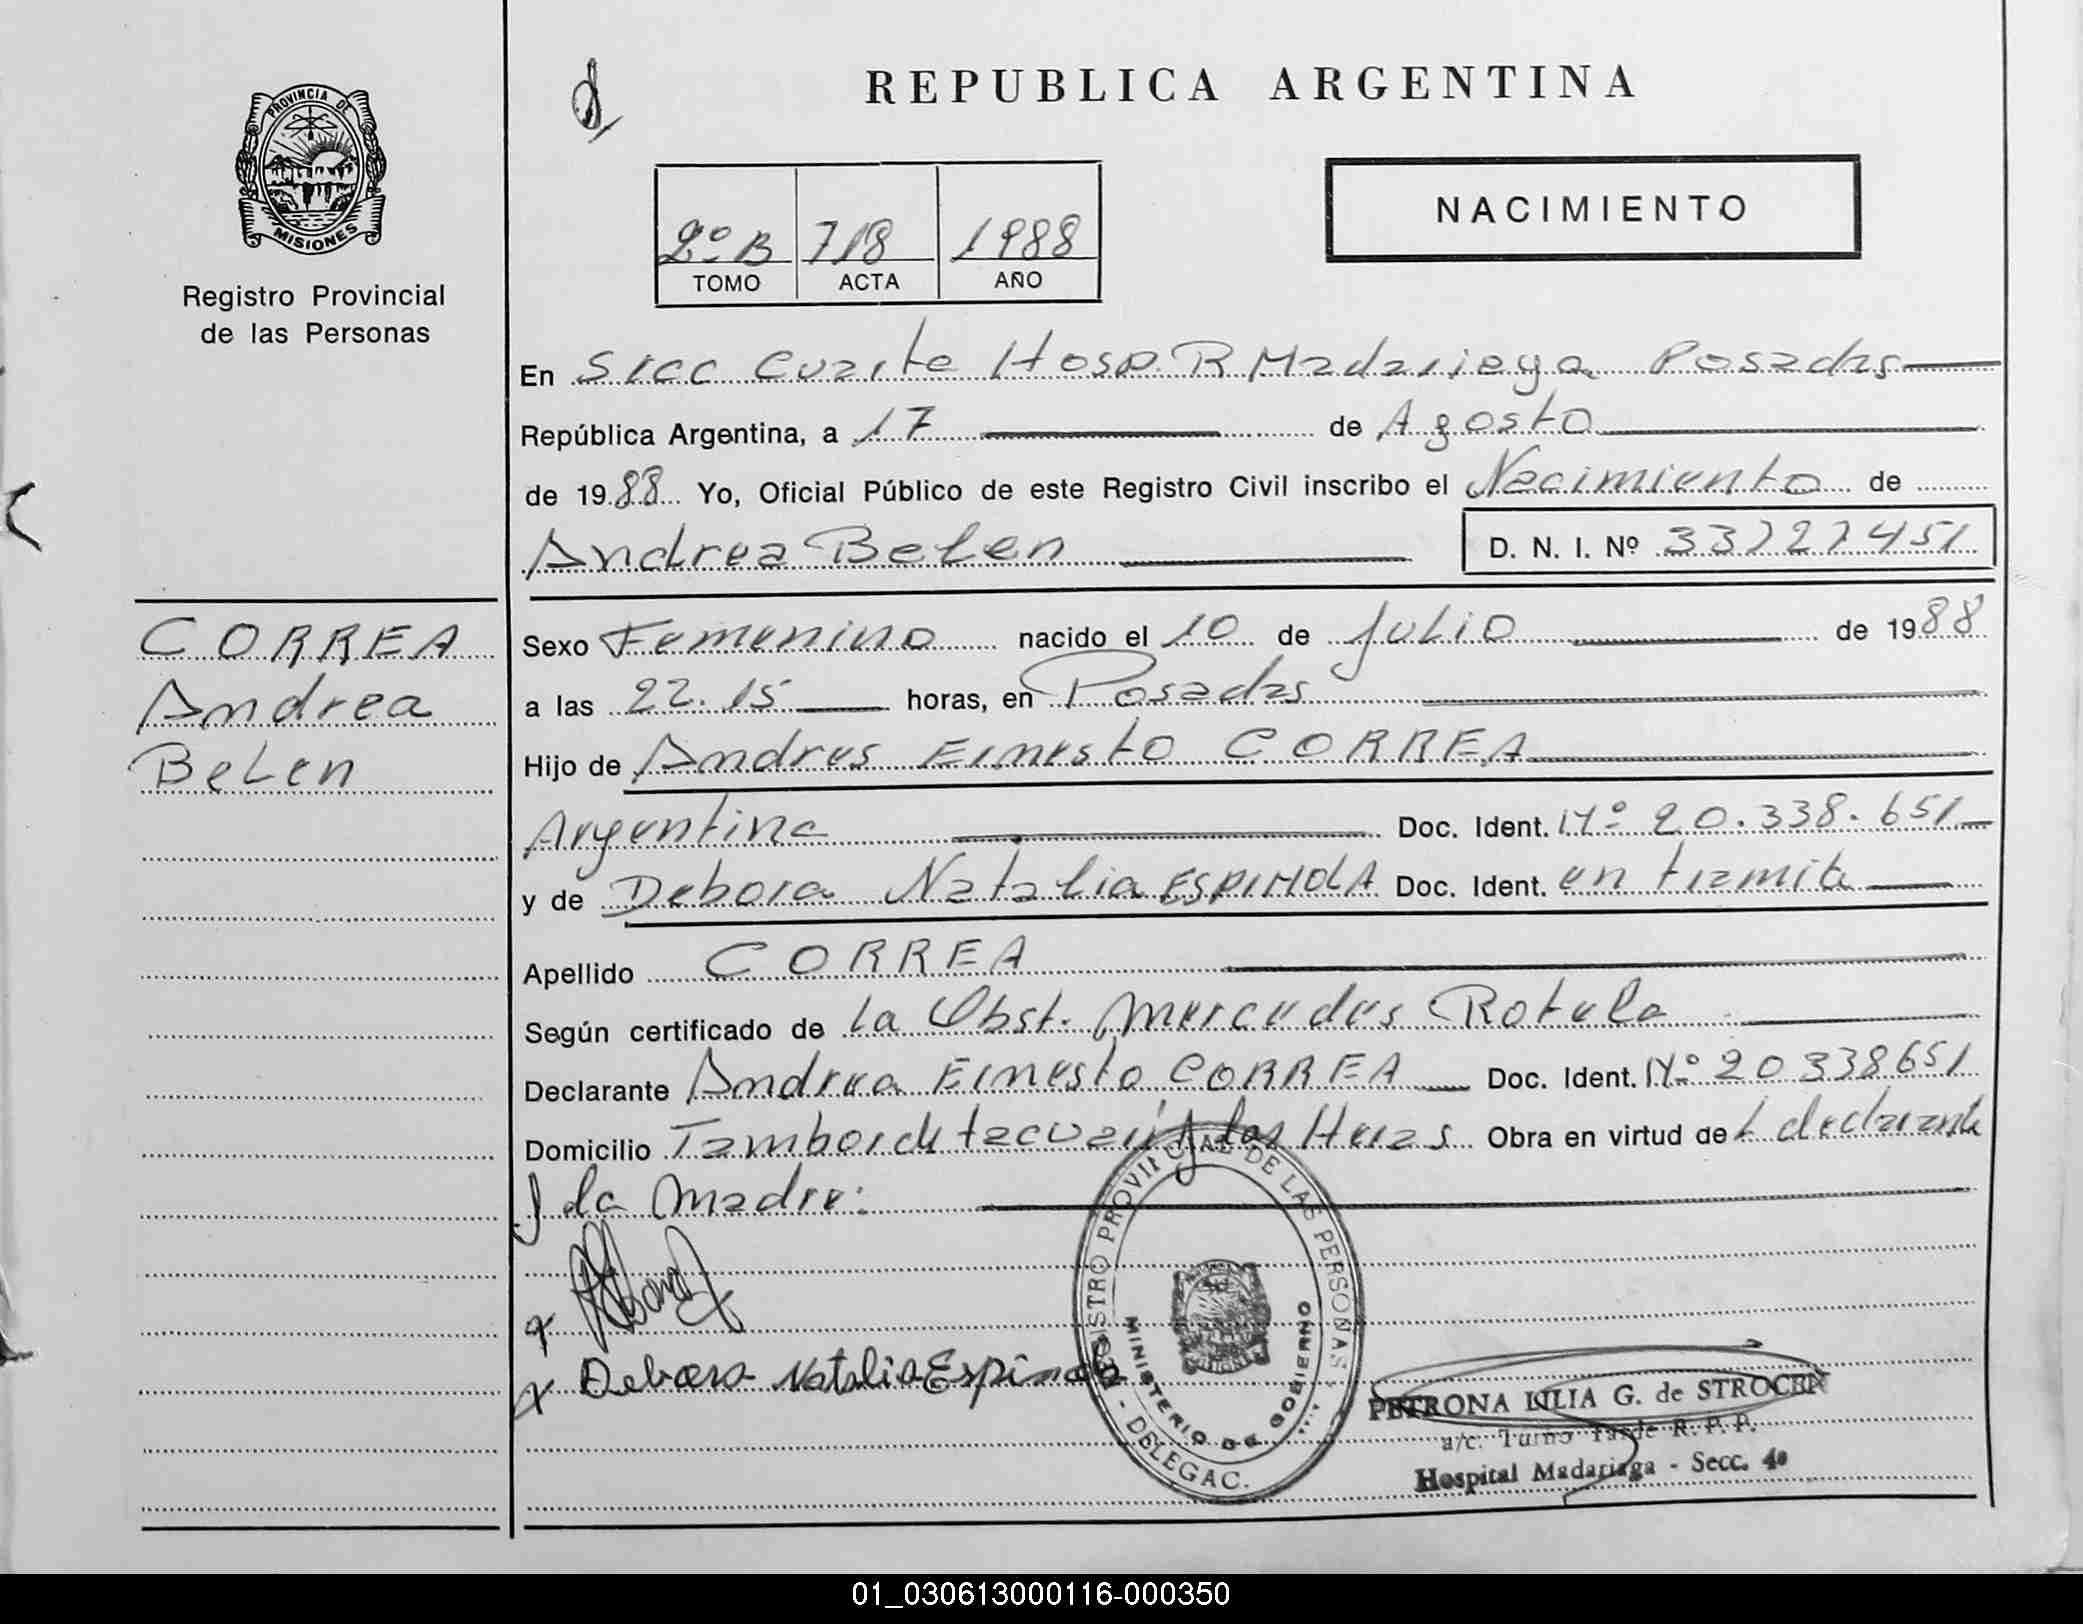 REPUBLICA ARGENTINA
PROVINCIA DE
MISIONES
Registro Provincial
de las Personas
2º B 718 1988
TOMO ACTA AÑO
NACIMIENTO
En Secc Cuarta Hosp. R Madariaga Posadas
República Argentina, a 17 de Agosto
de 1988 Yo, Oficial Público de este Registro Civil inscribo el Nacimiento de
Andrea Belen D. N. I. Nº 33727451
CORREA
Andrea
Belen
Sexo Femenino nacido el 10 de Julio de 1988
a las 22.15 horas, en Posadas
Hijo de Andres Ernesto CORREA
Argentina Doc. Ident. Nº 20.338.651
y de Debora Natalia ESPINOLA Doc. Ident. en tramite
Apellido CORREA
Según certificado de la Obst. Mercedes Rotela
Declarante Andres Ernesto CORREA Doc. Ident. Nº 20338651
Domicilio Tambor de tacuari y las Heras Obra en virtud de L declarante
y la Madre:
Debora Natalia Espinola
REGISTRO PROVINCIAL DE LAS PERSONAS
MINISTERIO DE GOBIERNO
DELEGAC.
PETRONA LILIA G. de STROCEN
a/c. Turno Tarde R. P. P.
Hospital Madariaga - Secc. 4ª
01_030613000116-000350